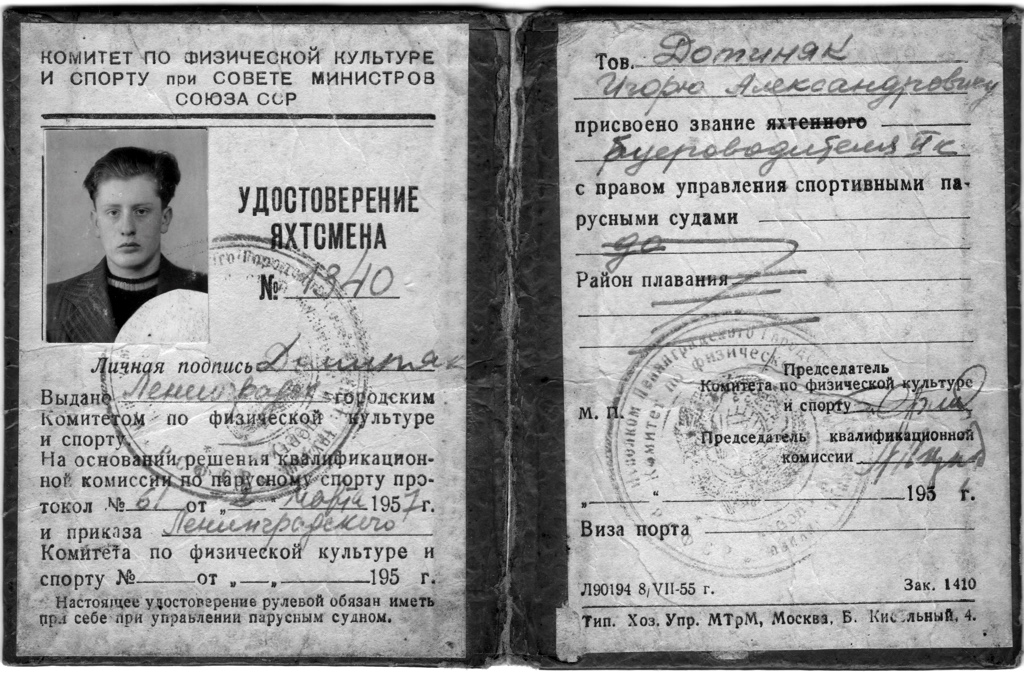 КОМИТЕТ ПО ФИЗИЧЕСКОЙ КУЛЬТУРЕ
И СПОРТУ при СОВЕТЕ МИНИСТРОВ
СОЮЗА ССР
УДОСТОВЕРЕНИЕ
ЯХТСМЕНА
№ 1340
Личная подпись
Выдано Ленинградск городским
Комитетом по физической культуре
и спорту
На основании решения квалификацион-
ной комиссии по парусному спорту про-
токол № 61 от „ " марта 1957 г.
и приказа Ленинградского
Комитета по физической культуре и
спорту № от „ „ 195 г.
Настоящее удостоверение рулевой обязан иметь
при себе при управлении парусным судном.
Тов. Дотиняк
Игорю Александровичу
присвоено звание яхтенного
буероводителя II к
с правом управления спортивными па-
русными судами
до
Район плавания
Председатель
Комитета по физической культуре
и спорту
М. П.
Председатель квалификационной
комиссии
„ " 195 г.
Виза порта
Л90194 8/VII-55 г. Зак. 1410
Тип. Хоз. Упр. МТрМ, Москва, Б. Кисельный, 4.